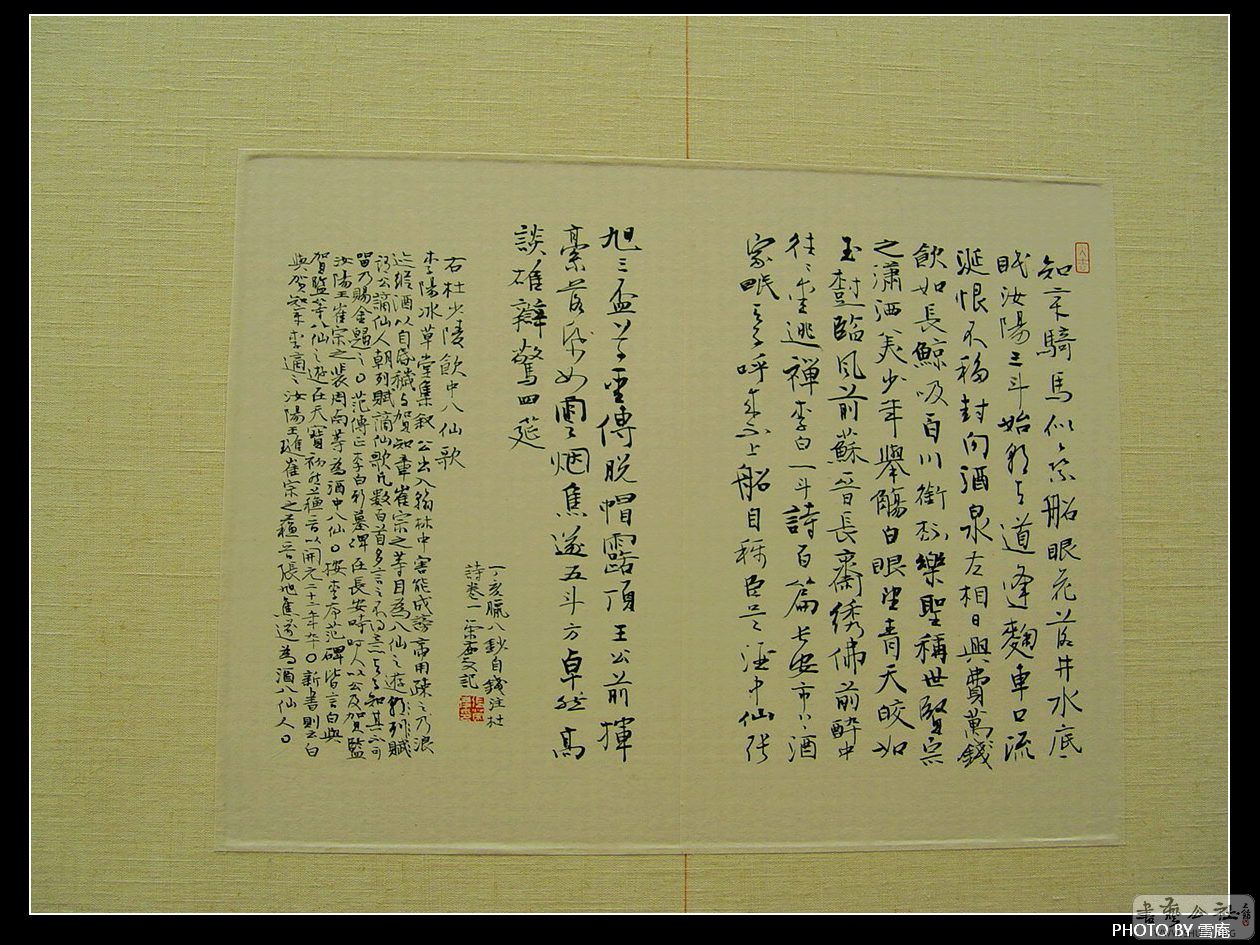 知章騎馬似乘船眼花落井水底
眠汝陽三斗始朝天道逢麴車口流
涎恨不移封向酒泉左相日興費萬錢
飲如長鯨吸百川銜杯樂聖稱世賢宗
之瀟洒美少年舉觴白眼望青天皎如
玉樹臨風前蘇晉長齋绣佛前醉中
往々愛逃禪李白一斗詩百篇長安市上酒
家眠天子呼來不上船自稱臣是酒中仙張
旭三盃草聖傳脫帽露頂王公前揮
豪落紙如雲烟焦遂五斗方卓然高
談雄辯驚四筵
右杜少陵飲中八仙歌
李陽冰草堂集叙公出入翰林中害能成謗帝用疎之乃浪
迹縱酒以自昏穢与賀知章崔宗之等自為八仙之遊朝列賦
謂公謫仙人朝列賦謫仙歌凡數百首多言公之不得意天子知其不可
留乃賜金歸之。范傳正李白新墓碑在長安時時人以公及賀監
汝陽王崔宗之裴周南等為酒中八仙。按李序范碑皆言白與
賀監等八仙之遊在天寶初然蘇晉以開元二十二年卒。新書則云白
與賀知章李適之汝陽王璡崔宗之蘇晉張旭焦遂為酒八仙人。
丁亥臘八鈔自錢注杜
詩卷一 記
書藝公社
PHOTO BY 雪庵